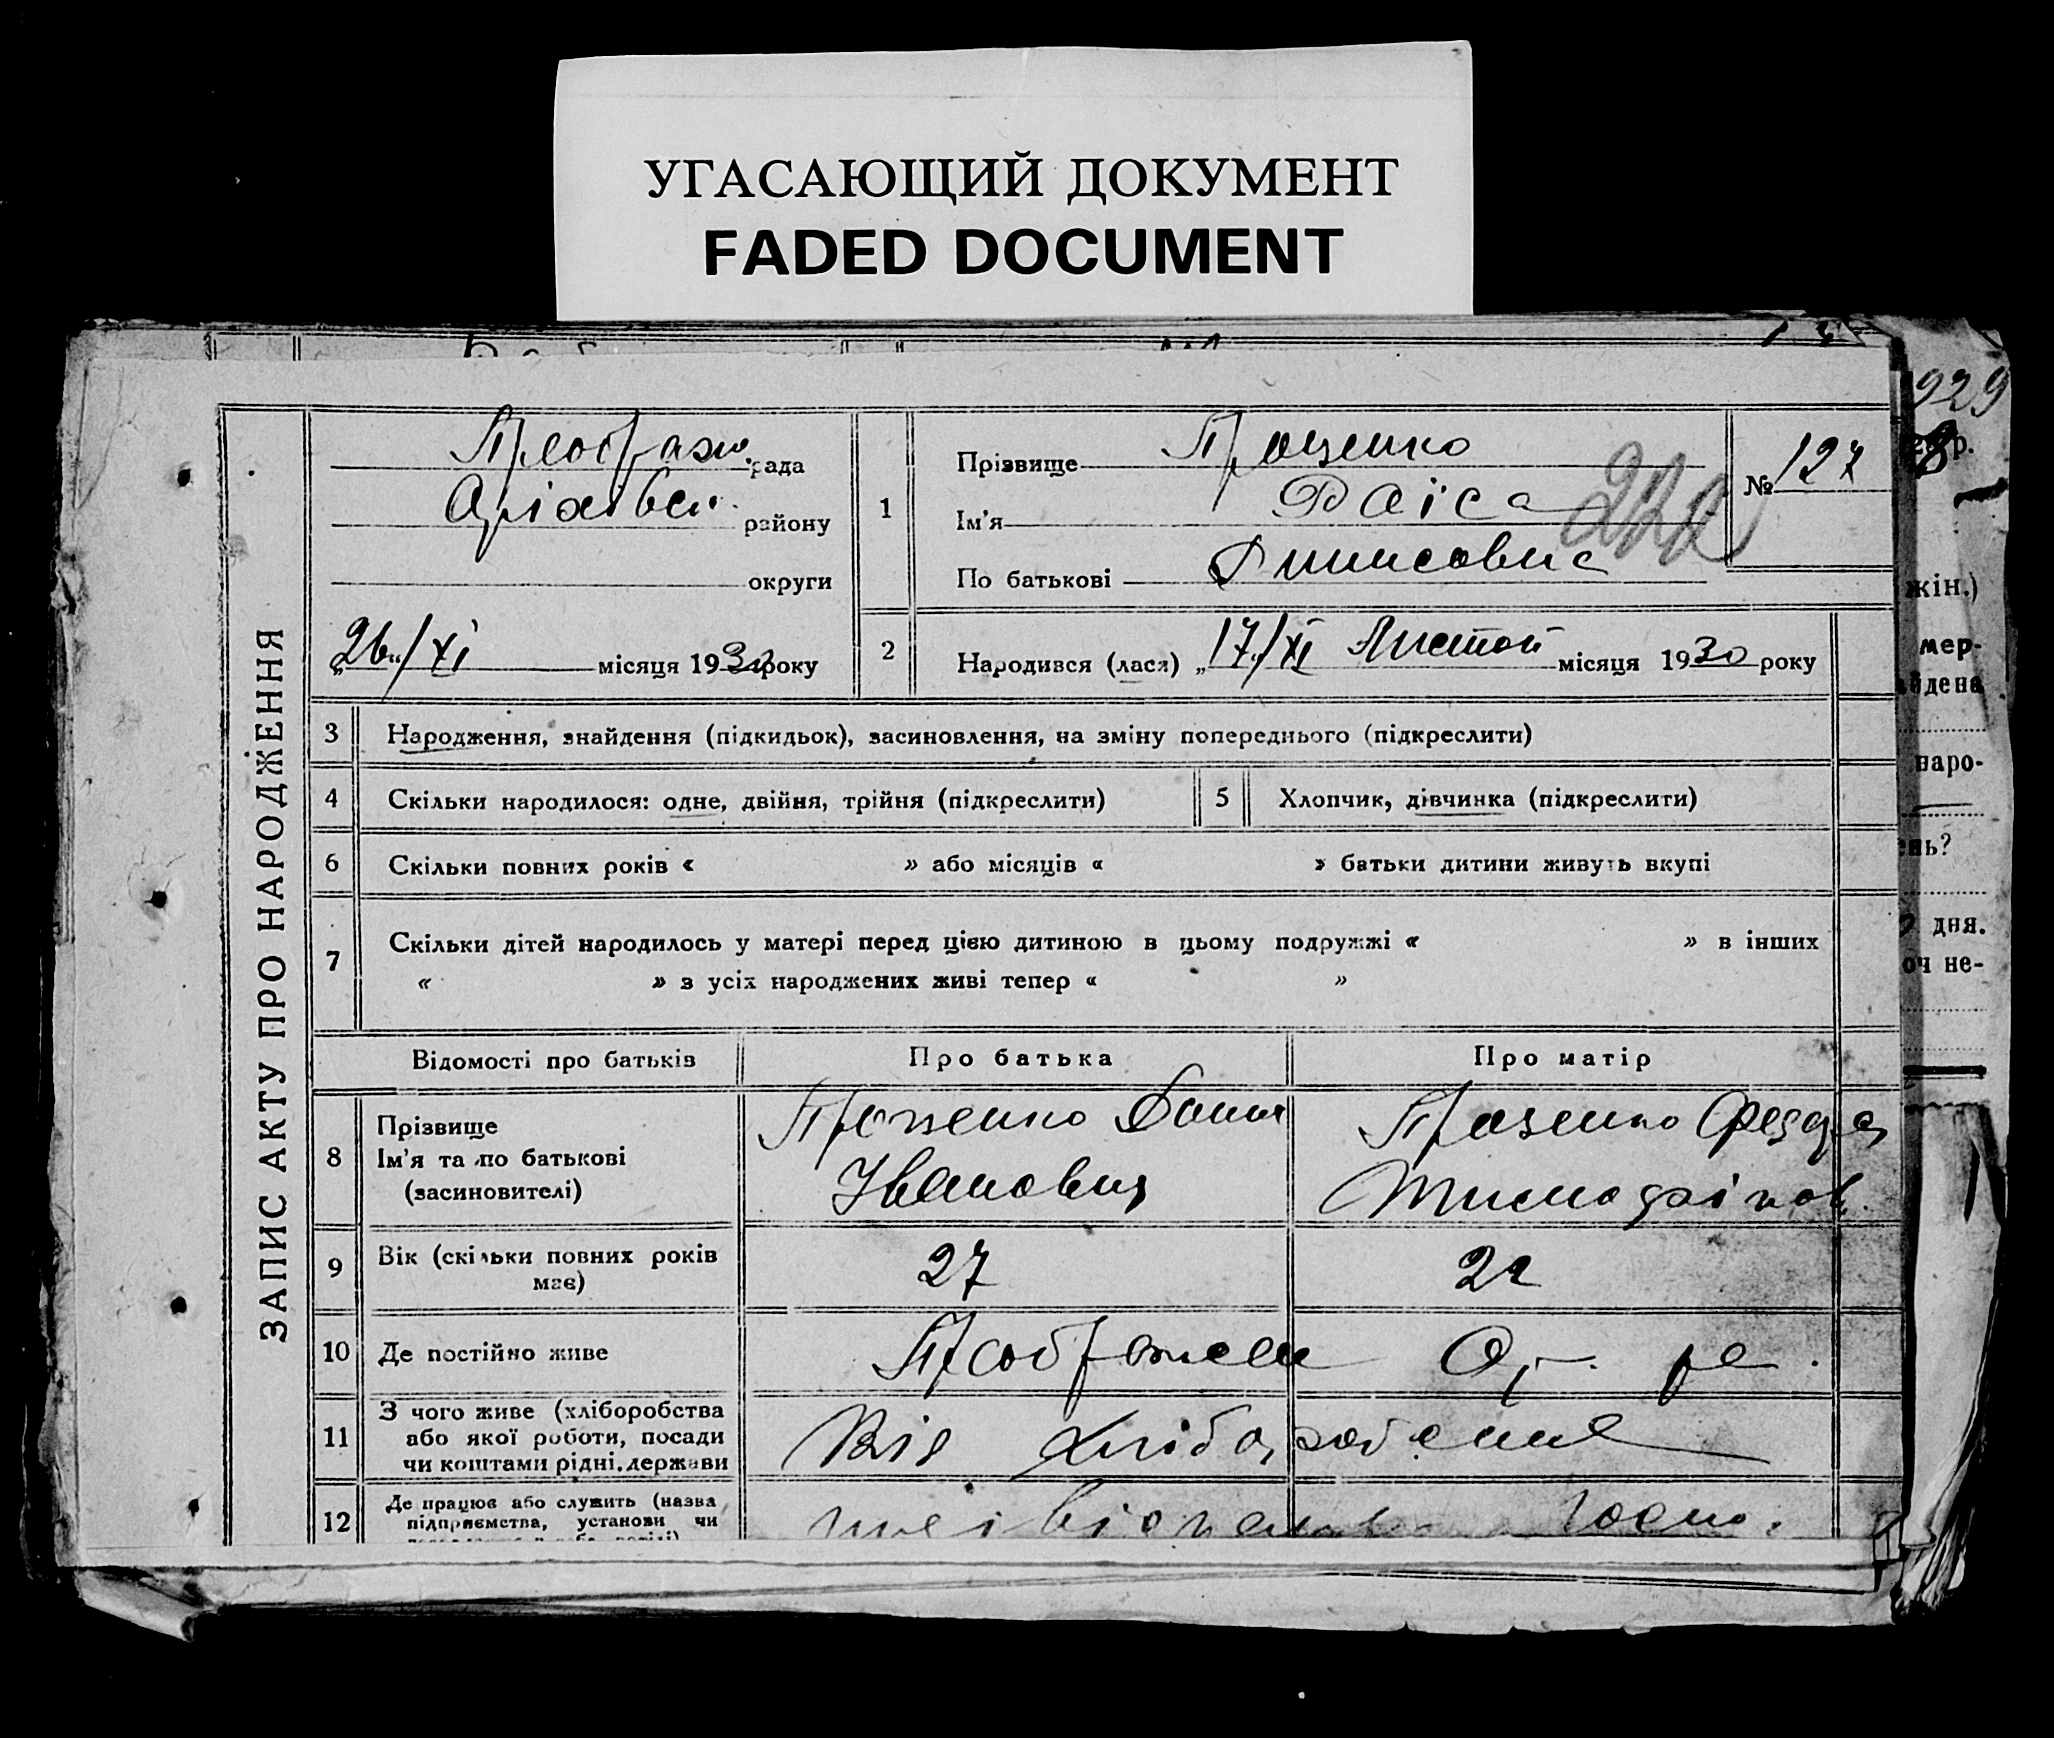 УГАСАЮЩИЙ ДОКУМЕНТ
FADED DOCUMENT
929
ЗАПИС АКТУ ПРО НАРОДЖЕННЯ
Преображ. рада
району
округи
„26“/XI місяця 1930 року
1
Прізвище Проценко
Ім'я Раїса
По батькові
№ 127
2
Народився (лася) „17“/XI Листоп місяця 1930 року
3 Народження, знайдення (підкидьок), засиновлення, на зміну попереднього (підкреслити)
4 Скільки народилося: одне, двійня, трійня (підкреслити)
5 Хлопчик, дівчинка (підкреслити)
6 Скільки повних років « » або місяців « » батьки дитини живуть вкупі
7 Скільки дітей народилось у матері перед цією дитиною в цьому подружжі « » в інших
« » з усіх народжених живі тепер « »
Відомості про батьків Про батька Про матір
8 Прізвище
Ім'я та по батькові
(засиновителі)
Проценко
Іванович
Проценко
9 Вік (скільки повних років
має)
27
22
10 Де постійно живе
11 З чого живе (хліборобства
або якої роботи, посади
чи коштами рідні, держави
Від
12 Де працює або служить (назва
підприємства, установи чи
жін.)
мер-
йдена
наро-
ень?
дня.
оч не-